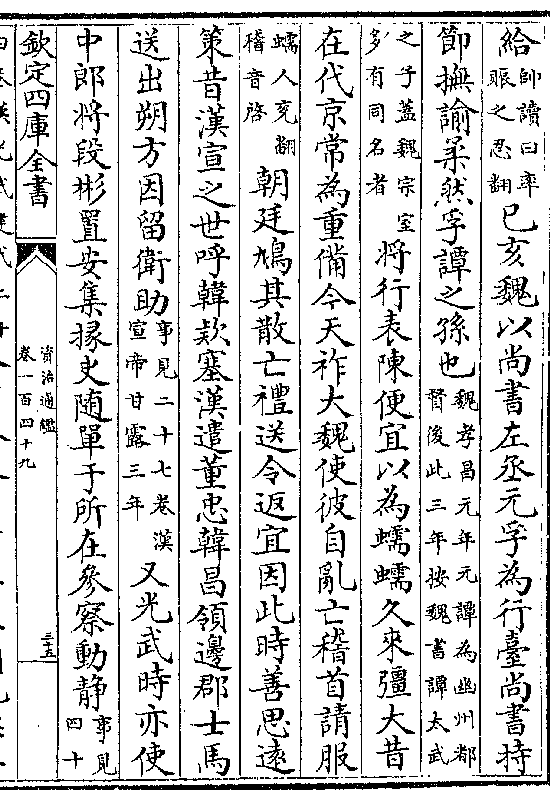 給帥讀曰率賑之忍翻己亥魏以尚書左丞元孚為行臺尚書持
節撫諭柔然孚譚之孫也魏孝昌元年元譚為幽州都督後此三年按魏書譚太武
之子蓋魏宗室多有同名者將行表陳便宜以為蠕蠕久來彊大昔
在代京常為重備今天祚大魏使彼自亂亡稽首請服
蠕人兖翻稽音啓朝廷鳩其散亡禮送令返宜因此時善思遠
策昔漢宣之世呼韓欵塞漢遣董忠韓昌領邊郡士馬
送出朔方因留衛助事見二十七卷漢宣帝甘露三年又光武時亦使
中郎將段彬置安集掾史随單于所在參察動靜事見四十
欽定四庫全書
資治通鑑
卷一百四十九
三十五